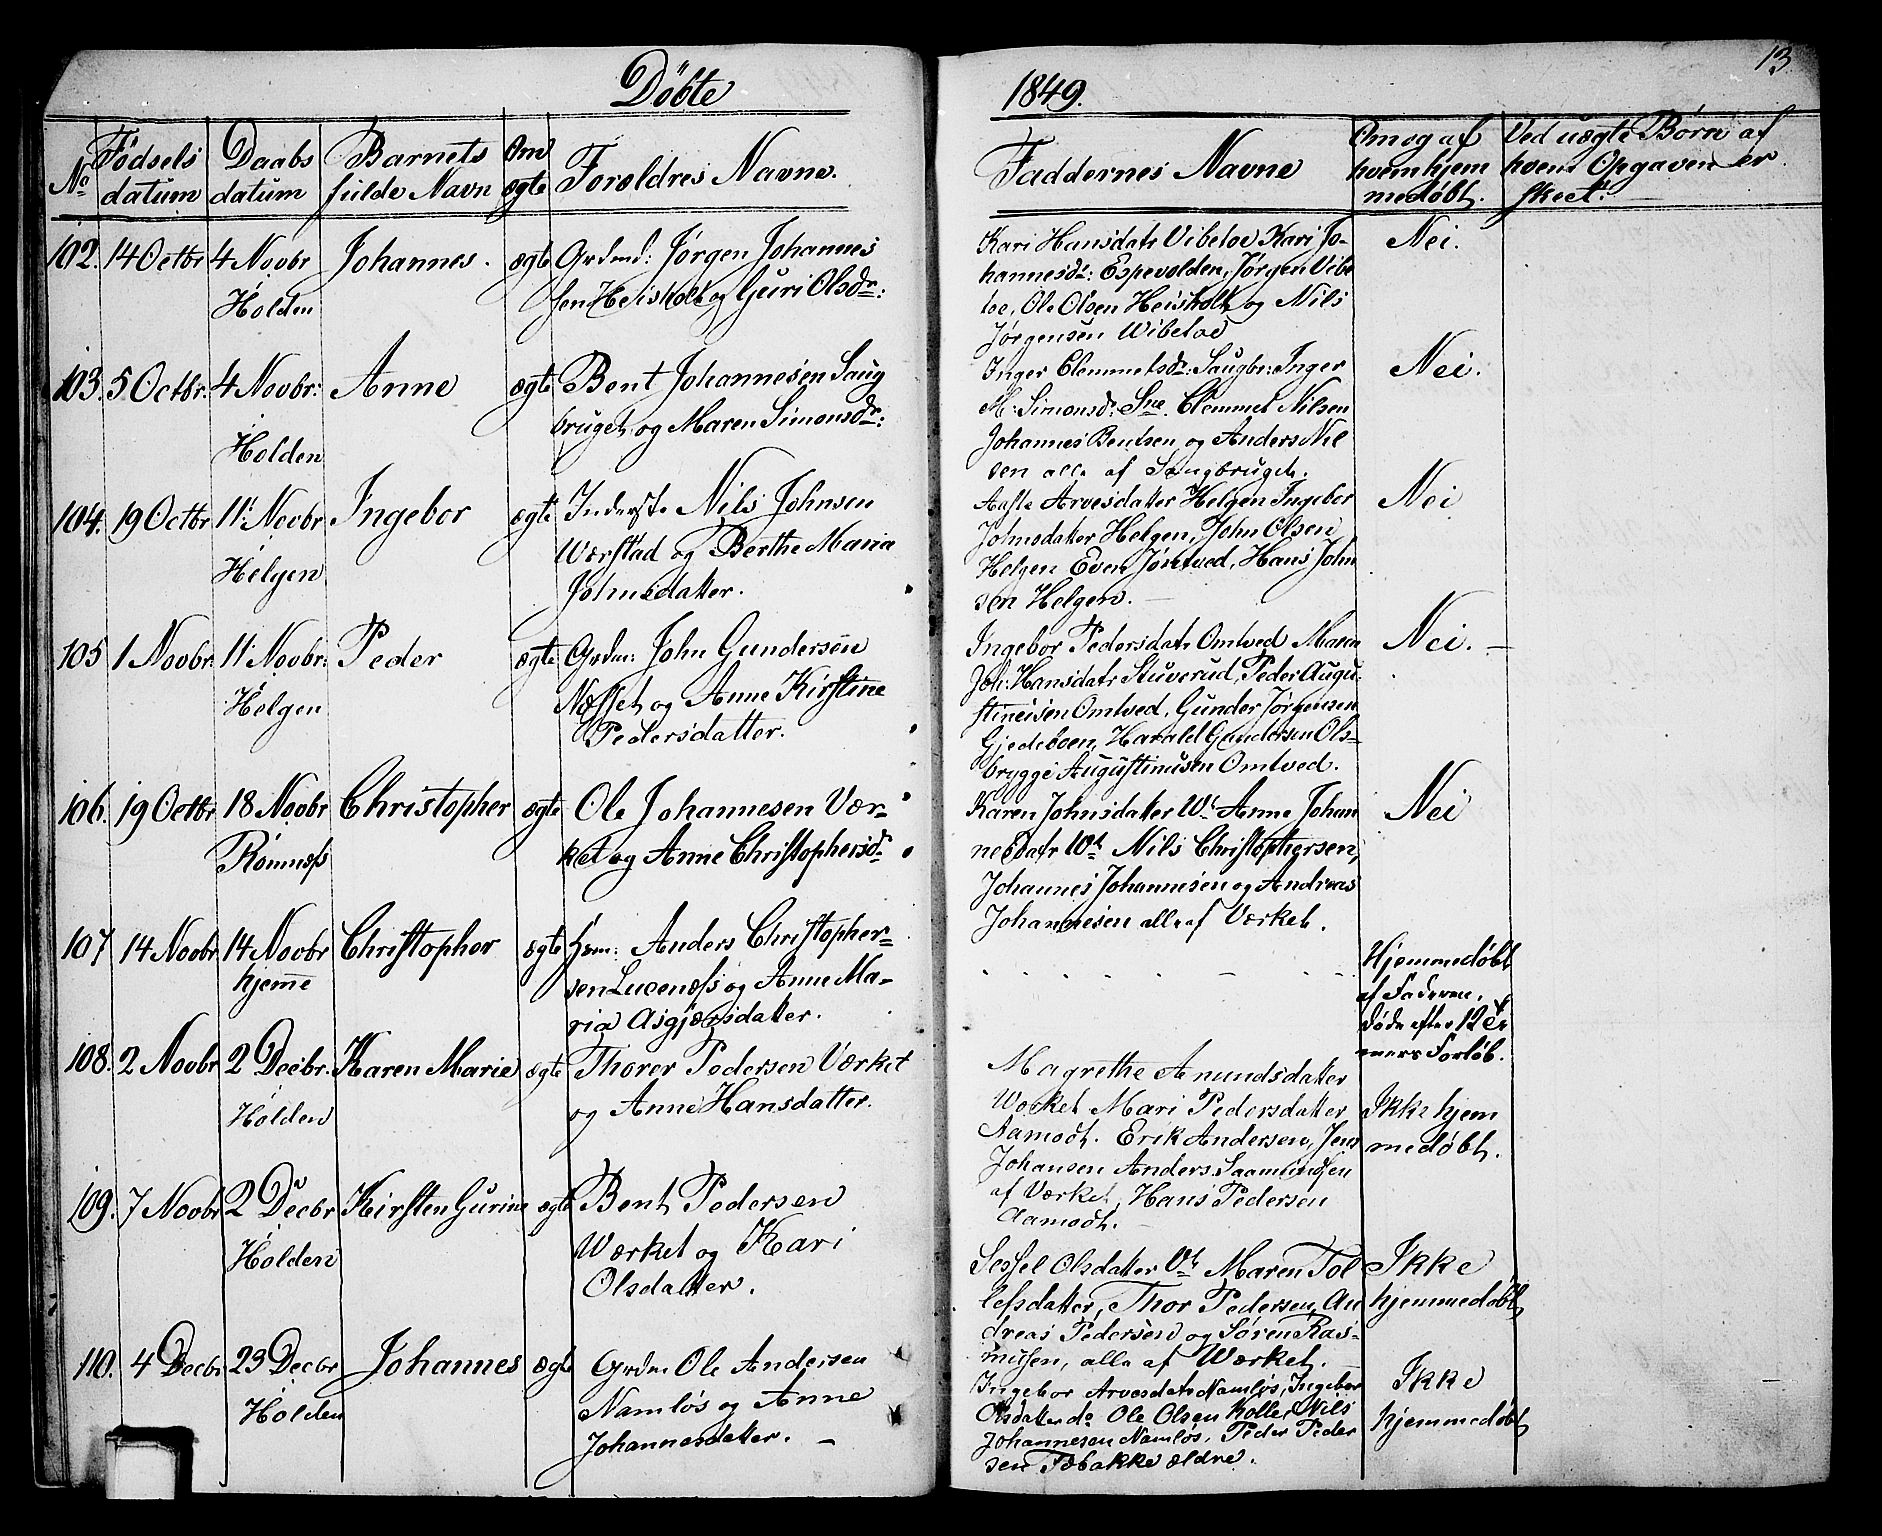 Döbte
1849.
13
No
Födsels
datum
Daabs
datum
Barnets
fulde Navn
Om
ægte
Forældres Navne.
Faddernes Navne
Om og af
hvem hjem
medöbt.
Ved uægte Børn af
hvem Opgaven er
skeet.
102. 14 Octbr 4 Novbr Johannes. ægte Grdmd: Jørgen Johannes
Holden
sen Heisholt og Guri Olsdr:
Kari Hansdatr Vibetoe Kari Jo-
hannesdr: Espevolden, Jørgen Vibe
toe, Ole Olsen Heisholt og Nils
Jørgensen Wibetoe
Nei.
103. 5 Octbr. 4 Novbr: Anne ægte Bent Johannesen Saug
Holden
bruget og Maren Simonsdr:
Inger Clemmetsdr: Saugbr: Inger
M: Simonsdr Sne. Clemmet Nilsen
Johannes Bentsen og Anders Nil
sen alle af Saugbruget.
Nei.
104. 19 Octbr 11 Novbr Ingebor ægte Inderste Nils Johnsen
Helgen
Værstad og Berthe Maria
Johnsdatter.
Aaste Arvesdatter Helgen Ingebor
Johnsdatter Helgen, John Olsen
Helgen Even Jøntved, Hans John
sen Helgen.
Nei
105 1 Novbr. 11 Novbr. Peder ægte Grdm: John Gundersen
Helgen
Næsset og Anne Kirstine
Pedersdatter.
Ingebor Pedersdatr Omtved Maren
Joh: Hansdatr Stuverud, Peder Augu-
stineisen Omtved, Gunder Jørgensen
Gjedeboen, Harald Gundersen Ols-
brygge Augustinusen Omtved.
Nei. —
106. 19 Octbr 18 Novbr Christopher ægte Ole Johannesen Vær-
Romnæss
ket og Anne Christophersdr
Karen Johnsdatter Wt Anne Johan
nesdatr Wt Nils Christophersen,
Johannes Johannesen og Andreas
Johannesen alle af Værket.
Nei
107 14 Novbr 14 Novbr Christopher ægte Hm: Anders Christopher-
hjemme
sen Lucenæss og Anne Ma-
ria Asgjærsdatter.
Hjemmedöbt
af Faderen.
döde efter 12 Ti
mers Forlöb.
108. 2 Novbr 2 Decbr. Karen Marie ægte Thorer Pedersen Værket
Holden
og Anne Hansdatter.
Magrethe Anundsdatter
Værket Mari Pedersdatter
Aamodt. Erik Andersen, Jens
Johansen Anders Saamundsen
af Værket, Hans Pedersen
Aamodt.
Ikke hjem
medöbt.
109. 7 Novbr 2 Decbr Kirsten Gurine ægte Bent Pedersen
Holden
Værket og Kari
Olsdatter.
Sessel Olsdatter Vt Maren Tol
lefsdatter, Thor Pedersen, An
dreas Pedersen og Søren Ras-
musen, alle af Værket.
Ikke
hjemmedöbt
110. 4 Decbr 23 Decbr Johannes ægte Grdm Ole Andersen
Holden
Namløs og Anne
Johannesdatter. —
Ingebor Arvesdatr Namløs, Ingebor
Olsdatter do Ole Olsen Kolle, Nils
Johannesen Namløs, Peder Peder
sen Tæbakke ældre.
Ikke
hjemmedöbt